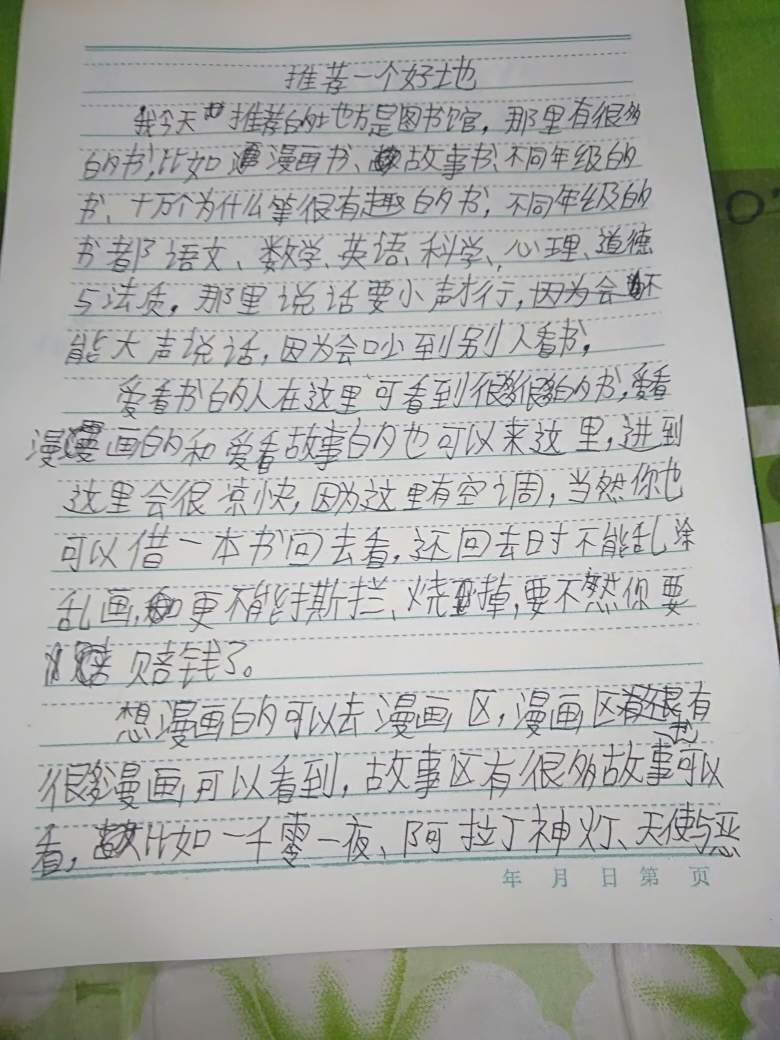 推荐一个好地
我今天推荐的地方是图书馆，那里有很多
的书，比如漫画书、故事书、不同年级的
书、十万个为什么等很有趣的书，不同年级的
书都语文、数学、英语、科学、心理、道德
与法质。那里说话要小声才行，因为会不
能大声说话，因为会吵到别人看书。
爱看书的人在这里可看到很多很多的书，爱看
漫画的和爱看故事的也可以来这里，进到
这里会很凉快，因为这里有空调，当然你也
可以借一本书回去看，还回去时不能乱涂
乱画，更不能撕拦、烧掉，要不然你要
赔钱了。
想漫画的可以去漫画区，漫画区有
很多漫画可以看到，故事区有很多故事书可以
看，比如一千零一夜、阿拉丁神灯、天使与恶
年 月 日 第 页